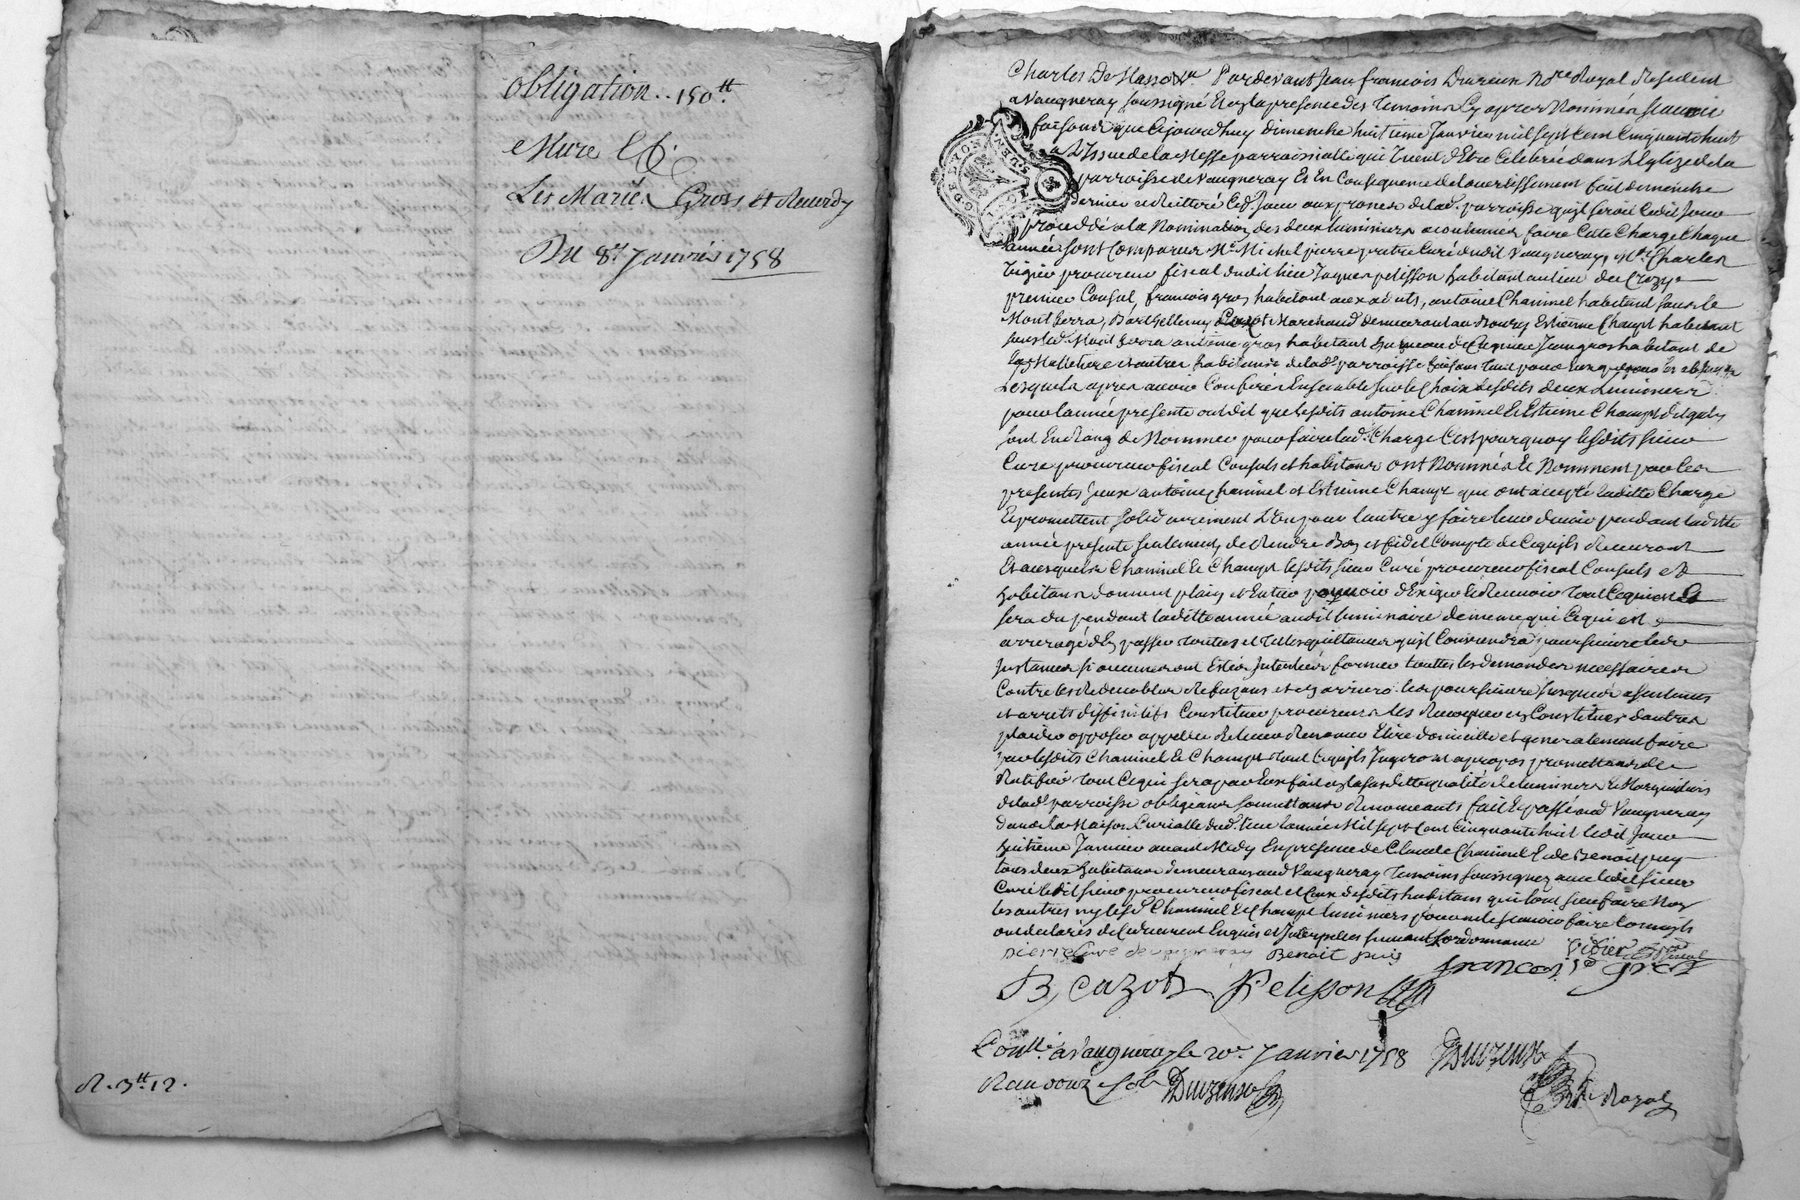 obligation .. 150 tt.
Mure &c.
Les Mariés Gros et Reverdy
Du 8e Janvier 1758
R. 3 tt. 12.
Pardevant Jean francois Duvzeux No.re Royal Resident
a Vaugneray soussigné Et en la presence des temoins Cy apres Nommés
que Cejourdhuy dimanche huitieme Janvier mil sept Cent Cinquante huit
a L'Issue de la Messe parroissialle qui vient d'Etre Celebrée dans L'Eglize de la
parroisse de Vaugneray Et En Consequence de l'avertissement fait dimanche
dernier et Reitteré Cejd. Jour aux prones de lad. parroisse qu'il seroit ledit Jour
procedé a la Nomination des deux luminiers accoutumés faire Cette Charge Chaque
année sont Comparus Mr. Michel pierre pretre Curé dudit Vaugneray, Mr. Charles
procureur fiscal dudit lieu Jaques pelisson habitant au lieu du
premier Consul, francois gros habitant aux adrets, antoine Chaminel habitant sous le
Mont Barthellemy Marchand demeurant au Bourg Estienne Champt habitant
antoine gros habitant Jean gros habitant de
et autres habitants de lad. parroisse faisant tant pour Eux que pour les absents
Lesquels apres avoir Conferés Ensemble sur le Choix desdits deux luminiers
pour l'année presente ont dit que lesdits antoine Chaminel Et Estienne Champt
sont En Rang de Nommer pour faire lad. Charge C'est pourquoy lesdits sieur
Curé procureur fiscal Consuls et habitans ont Nommés Et Nomment par les
presentes Jceux antoine Chaminel et Estienne Champt qui ont accepté laditte Charge
Et promettent solidairement L'un pour l'autre y faire leur devoir pendant laditte
année presente seulement, de Rendre Bon et fidel Compte de Cequ'ils Recevront
Et auxquels Chaminel Et Champt lesdits sieur Curé procureur fiscal Consuls et
habitans donnent plain et Entier pouvoir d'Exiger Et Recevoir tout Cequi est Et
sera du pendant laditte année audit luminaire de meme que Cequi est
arreragé En passer toutes et telles quittances qu'il Conviendra poursuivre les
Instances si aucunes ont Esté Intentées former touttes les demandes necessaires
Contre les Redevables Refuzans et les poursuivre Jusques a sentences
et arrets diffinitifs Constituer procureurs les Revoquer en Constituer d'autres
plaider opposer appeller Relever Renoncer Elire domicille et generalement faire
par lesdits Chaminel Et Champt tout Cequ'ils Jugeront a propos promettans de
Ratifier tout Cequi sera par Eux fait En laditte qualité de luminiers Et Marguilliers
de lad. parroisse obligeans soumettans Renonceants fait Et passé aud. Vaugneray
dans la Maison Curialle dud. lieu l'année Mil sept Cent Cinquante huit ledit Jour
huitieme Janvier avant Midy En presence de Claude Chaminel Et de Benoit puy
tous deux habitans demeurans aud. Vaugneray temoins soussignez avec ledit sieur
Curé ledit sieur procureur fiscal et Ceux desdits habitans qui l'ont sceu faire Non
les autres ny lesd. Chaminel Et Champt luminiers pour ne le scavoir faire Comm'ils
ont declarés de Ce duement Enquis et Interpellés suivant l'ordonnance
pierre Curé de vaugneray Benoit puis
francois gros
B, cazot Pelisson
Con.llé a Vaugneray le 20e. Janvier 1758
Reçu douze sols
Royal